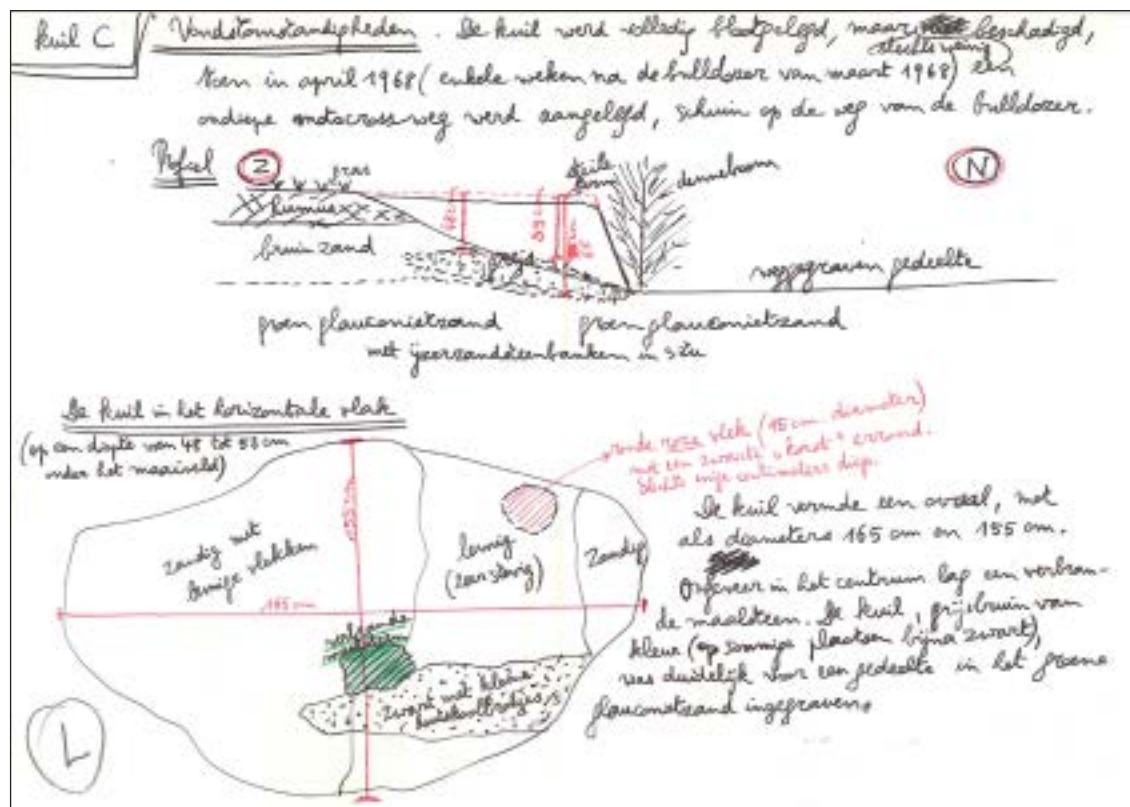 kuil C
Vondstomstandigheden. De kuil werd volledig blootgelegd, maar slechts weinig beschadigd,
toen in april 1968 (enkele weken na de bulldozer van maart 1968) een
ondiepe motocross-weg werd aangelegd, schuin op de weg van de bulldozer.
Profiel
Z
gras
steile
dennenboom
N
humus
48 cm
bruin zand
weggegraven gedeelte
groen glauconietzand
groen glauconietzand
met ijzerzandsteenbanken in situ
De kuil in het horizontale vlak
(op een diepte van 48 tot 53 cm
onder het maaiveld)
ronde roze vlek (15 cm diameter)
met een zwarte "korst" errond.
Slechts enige centimeters diep.
zandig met
lemige vlekken
lemig
(zeer stevig)
zandig
155 cm
165 cm
verbrande
zwart met kleine
houtskoolbrokjes
De kuil vormde een ovaal, met
als diameters 165 cm en 155 cm.
Ongeveer in het centrum lag een verbran-
de maalsteen. De kuil, grijsbruin van
kleur (op sommige plaatsen bijna zwart),
was duidelijk voor een gedeelte in het groene
glauconietzand ingegraven.
L